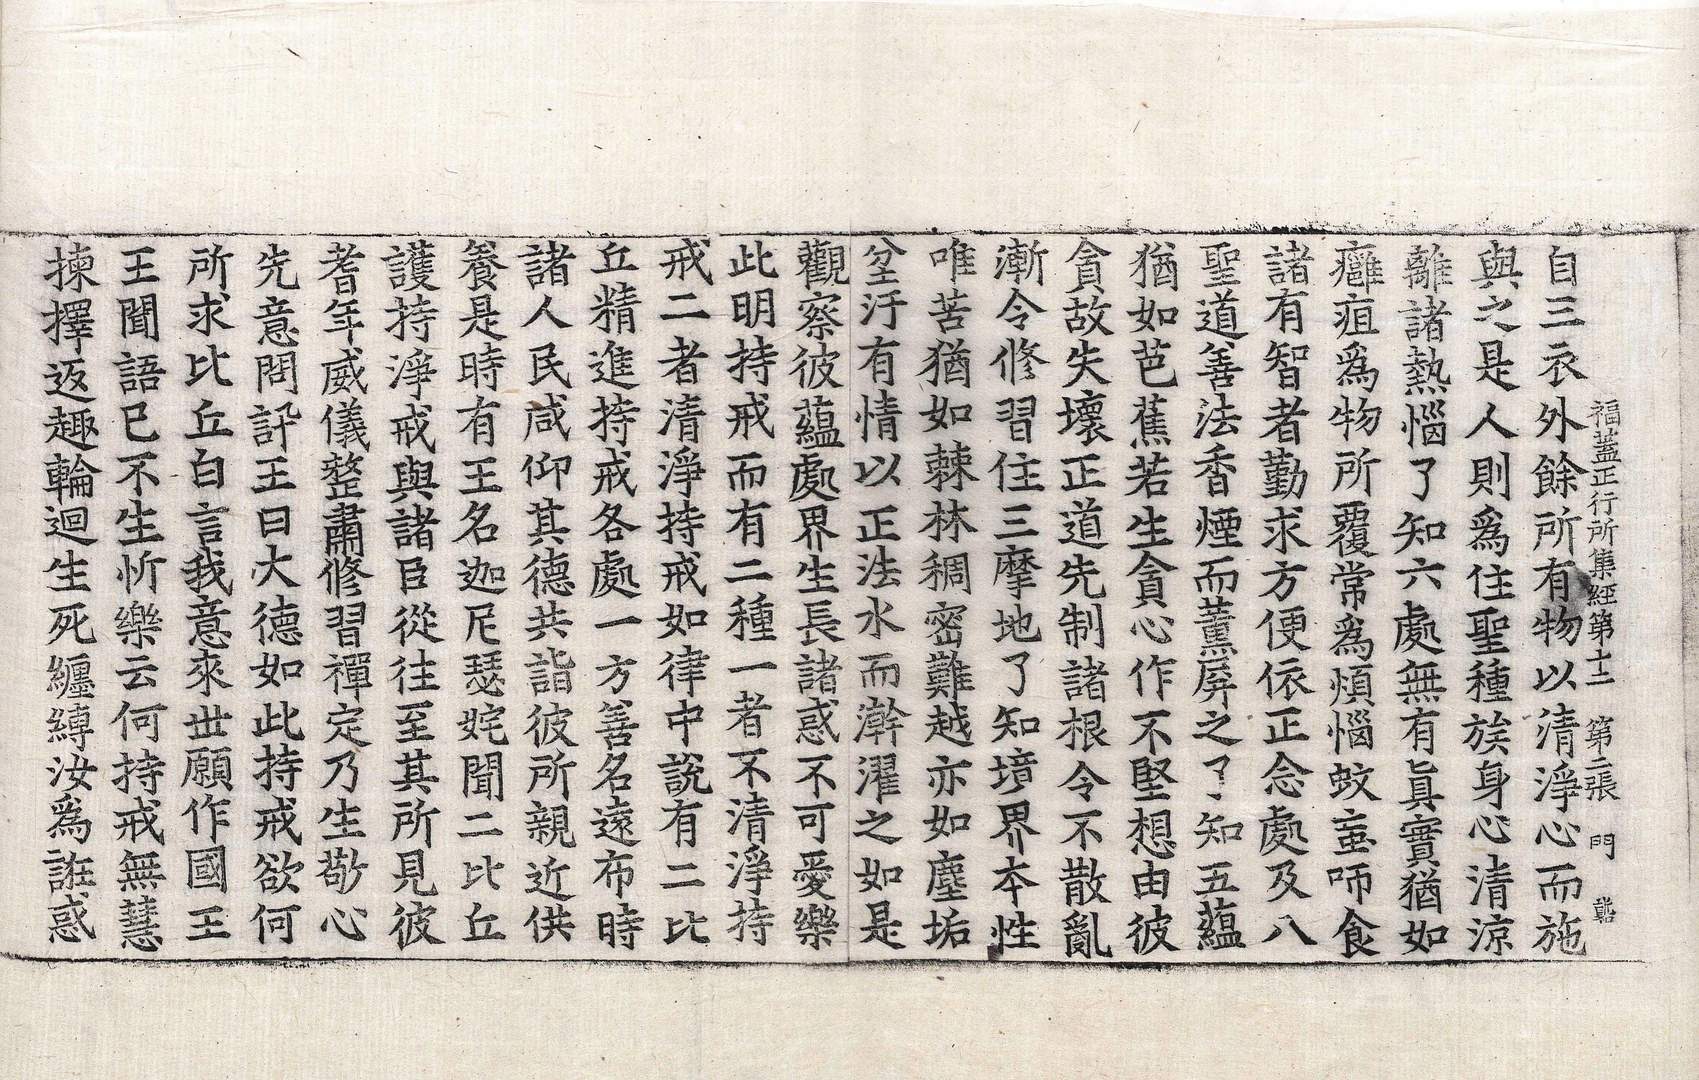 福蓋正行所集經第十二 第二張 門
自三衣外餘所有物以清淨心而施
與之是人則爲住聖種族身心清涼
離諸熱惱了知六處無有眞實猶如
癰疽爲物所覆常爲煩惱蚊䖟咂食
諸有智者勤求方便依正念處及八
聖道善法香煙而薰屏之了知五蘊
猶如芭蕉若生貪心作不堅想由彼
貪故失壞正道先制諸根令不散亂
漸令修習住三摩地了知境界本性
唯苦猶如棘林稠密難越亦如塵垢
坌汙有情以正法水而澣濯之如是
觀察彼蘊處界生長諸惑不可愛樂
此明持戒而有二種一者不清淨持
戒二者清淨持戒如律中說有二比
丘精進持戒各處一方善名遠布時
諸人民咸仰其德共詣彼所親近供
養是時有王名迦尼瑟姹聞二比丘
護持淨戒與諸臣從往至其所見彼
耆年威儀整肅修習禪定乃生敬心
先意問訊王曰大德如此持戒欲何
所求比丘白言我意來世願作國王
王聞語已不生忻樂云何持戒無慧
揀擇返趣輪迴生死纏縛汝爲誑惑